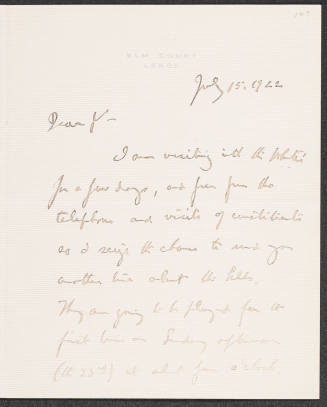 ELM COURT
LENOX
July 15. 1922
Dear J—
I am visiting with the
for a few days, and free from the
telephone and visits of constituents
so I seize the chance to send you
another line about the bells.
They are going to be played for the
first time on Sunday afternoon
(the 23rd) at about four o'clock.